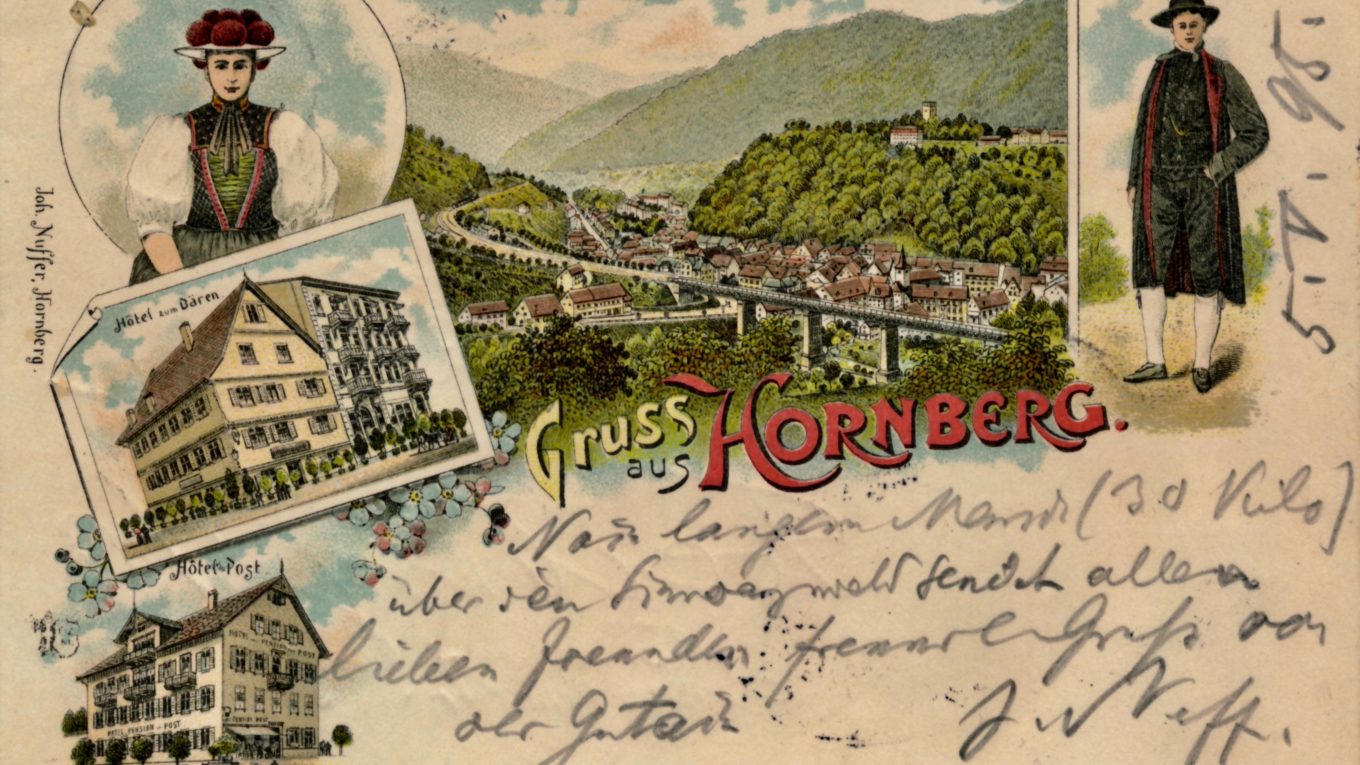 Joh. Nuffer, Hornberg.
Hôtel zum Bären
Gruss
aus HORNBERG.
Hôtel Post
HOTEL PENSION POST
HOTEL PENSION POST
5. V. 98.
langem Marsch (30 Kilo)
über den Schwarzwald sendet allen
lieben Freunden Gruß von
der Gutach
J Neff.